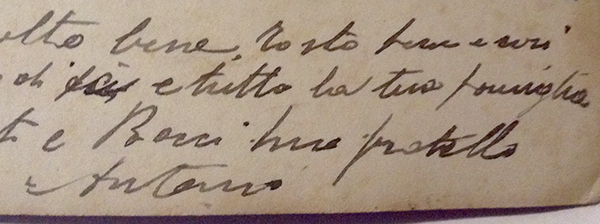 olto bene. Tosto bene e voi
di te e tutto la tua famiglia
e Bacci tuo fratello
Antonio